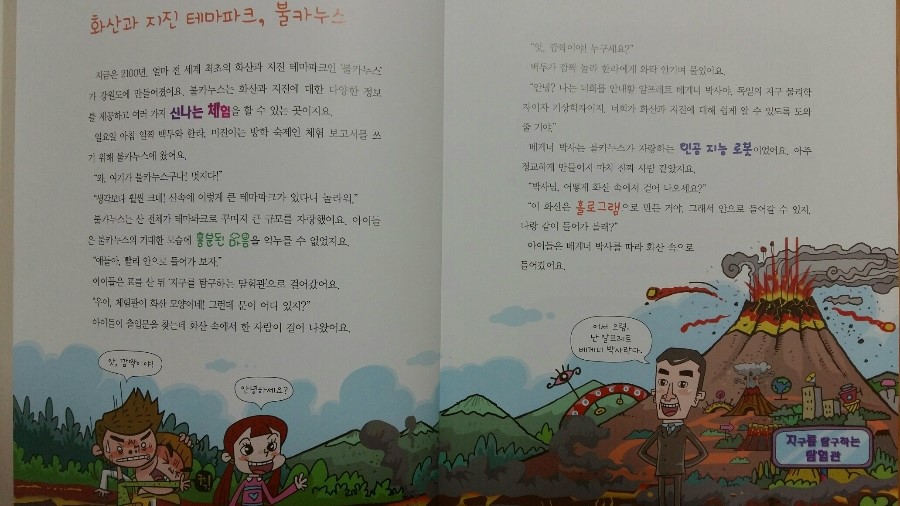 화산과 지진 테마파크, 불카누스
지금은 2100년, 얼마 전 세계 최초의 화산과 지진 테마파크인 '불카누스'
가 강원도에 만들어졌어요. 불카누스는 화산과 지진에 대한 다양한 정보
를 제공하고 여러 가지 신나는 체험을 할 수 있는 곳이지요.
일요일 아침 일찍 백두와 한라, 미진이는 방학 숙제인 체험 보고서를 쓰
기 위해 불카누스에 왔어요.
"와, 여기가 불카누스구나! 멋지다!"
"생각보다 훨씬 크네! 산속에 이렇게 큰 테마파크가 있다니 놀라워."
불카누스는 산 전체가 테마파크로 꾸며져 큰 규모를 자랑했어요. 아이들
은 불카누스의 거대한 모습에 흥분된 마음을 억누를 수 없었지요.
"얘들아, 빨리 안으로 들어가 보자."
아이들은 표를 산 뒤 '지구를 탐구하는 탐험관'으로 걸어갔어요.
"우아, 체험관이 화산 모양이네! 그런데 문이 어디 있지?"
아이들이 출입문을 찾는데 화산 속에서 한 사람이 걸어 나왔어요.
앗, 깜짝이야!
안녕하세요?
"앗, 깜짝이야! 누구세요?"
백두가 깜짝 놀라 한라에게 와락 안기며 물었어요.
"안녕? 나는 너희를 안내할 알프레트 베게너 박사야. 독일의 지구 물리학
자이자 기상학자이지. 너희가 화산과 지진에 대해 쉽게 알 수 있도록 도와
줄 거야."
베게너 박사는 불카누스가 자랑하는 인공 지능 로봇이었어요. 아주
정교하게 만들어져 마치 진짜 사람 같았지요.
"박사님, 어떻게 화산 속에서 걸어 나오세요?"
"이 화산은 홀로그램으로 만든 거야. 그래서 안으로 들어갈 수 있지.
나랑 같이 들어가 볼래?"
아이들은 베게너 박사를 따라 화산 속으로
들어갔어요.
어서 오렴.
난 알프레트
베게너 박사란다.
지구를 탐구하는
탐험관